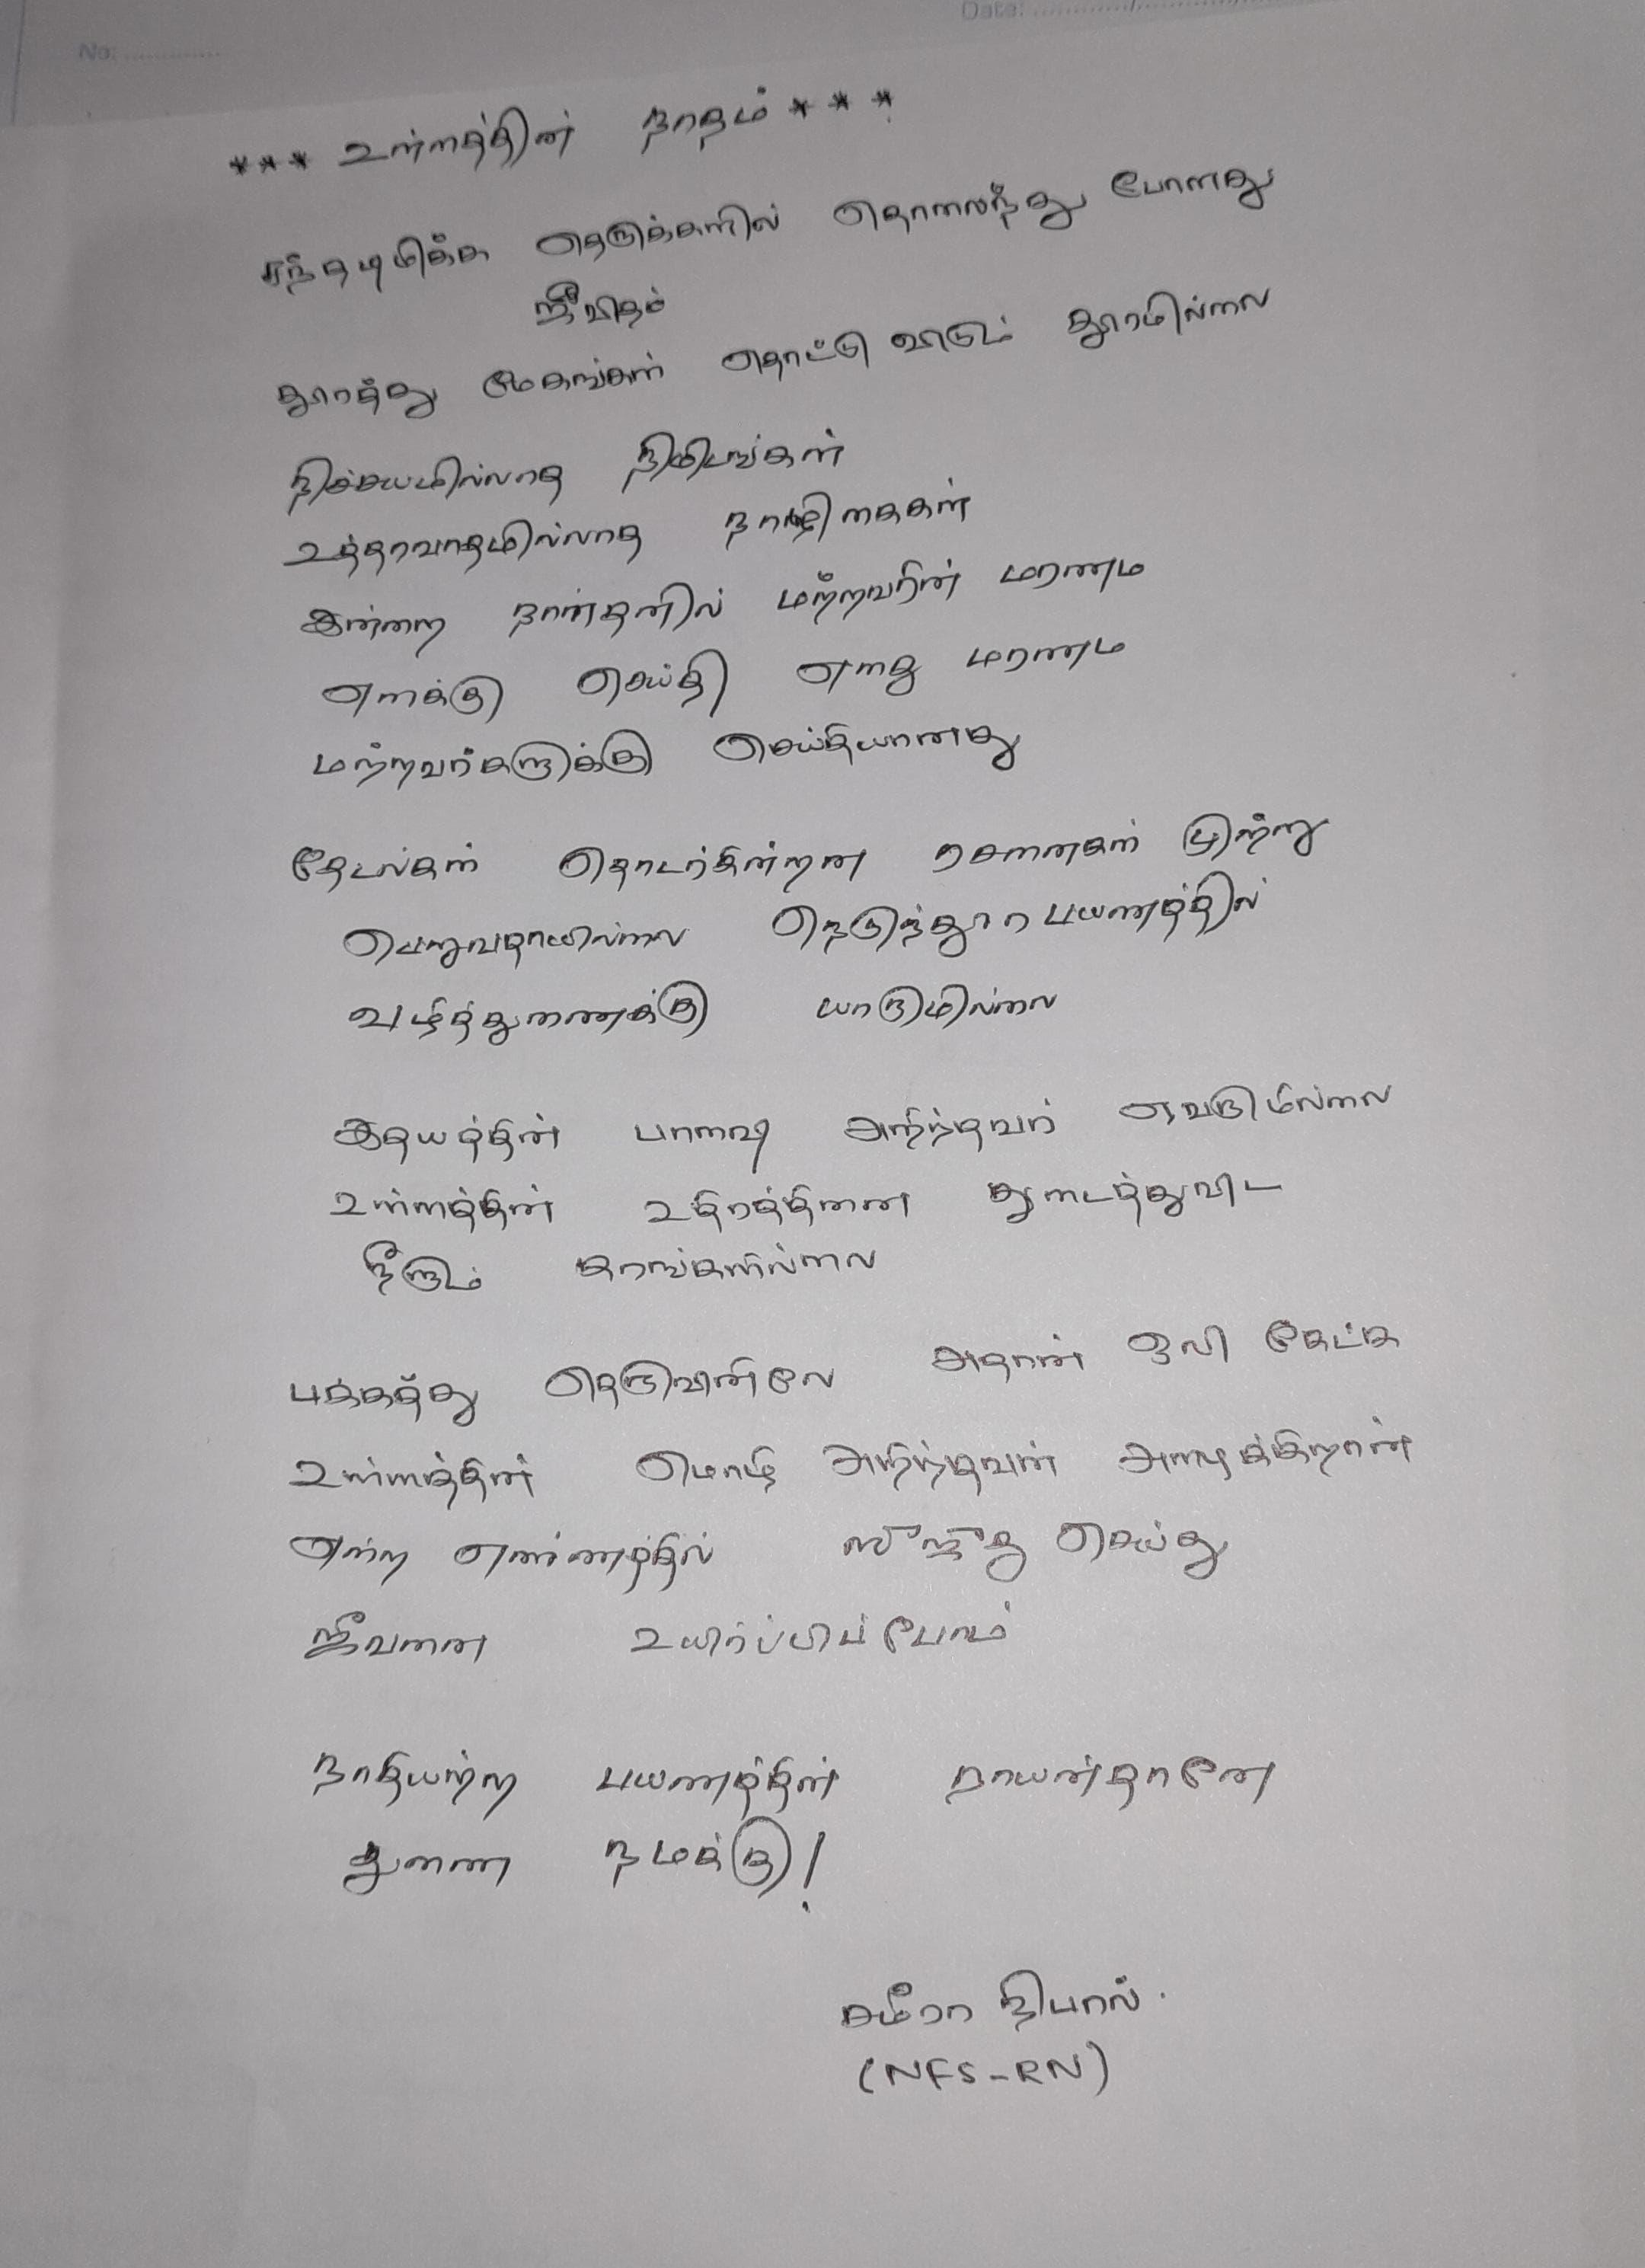 No: ............
Date: ............/............
*** உள்ளத்தின் நாதம் ***
சந்தடிமிக்க தெருக்களில் தொலைந்து போனது
ஜீவிதம்
தூரத்து மேகங்கள் தொட்டு விடும் தூரமில்லை
நிச்சயமில்லாத நிமிடங்கள்
உத்தரவாதமில்லாத நாழிகைகள்
இன்றை நாள்தனில் மற்றவரின் மரணம்
எனக்கு செய்தி எனது மரணம்
மற்றவர்களுக்கு செய்தியானது
தேடல்கள் தொடர்கின்றன ரசனைகள் முற்று
பெறுவதாயில்லை நெடுந்தூர பயணத்தில்
வழித்துணைக்கு யாருமில்லை
இதயத்தின் பாஷை அறிந்தவர் எவருமில்லை
உள்ளத்தின் உதிரத்தினை துடைத்துவிட
நீளும் கரங்களில்லை
பக்கத்து தெருவினிலே அதான் ஒலி கேட்க
உள்ளத்தின் மொழி அறிந்தவன் அழைக்கிறான்
என்ற எண்ணத்தில் ஸுஜூது செய்து
ஜீவனை உயிர்ப்பிப்போம்
நாதியற்ற பயணத்தின் நாயன்தானே
துணை நமக்கு!
சமீரா நிபால்.
(NFS-RN)